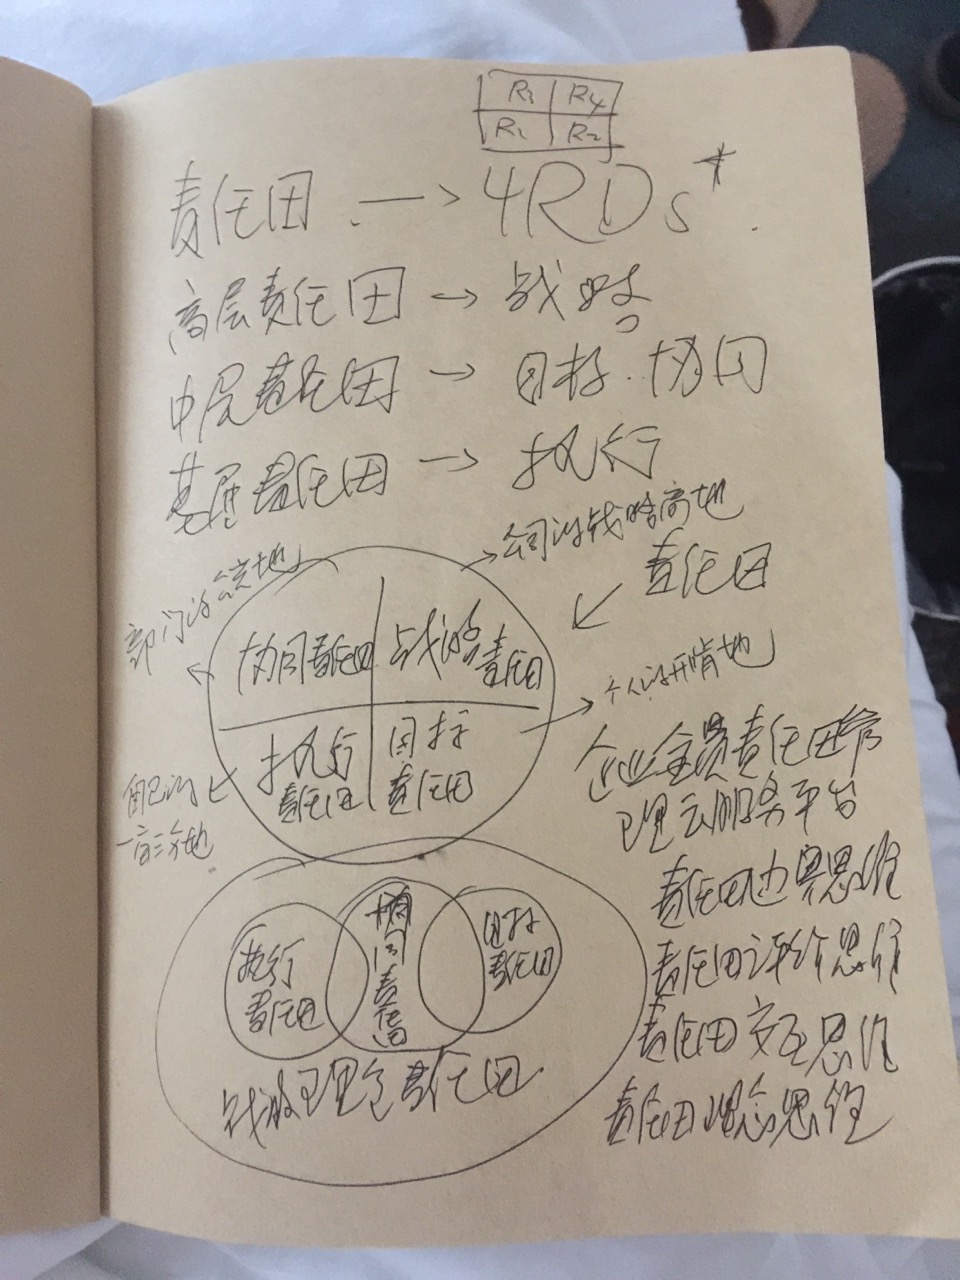 R3 R4
R1 R2
责任田 → 4RDs*
高层责任田 → 战略
中层责任田 → 目标·协同
基层责任田 → 执行
公司的战略高地
部门的
责任田
协同责任田
战略责任田
个人的开啃地
执行责任田
目标责任田
自己的
一亩三分地
企业全景责任田管
理云服务平台
责任田边界思维
责任田评价思维
责任田交互思维
责任田理念思维
执行
责任田
协同责任田
目标
责任田
战略理念责任田